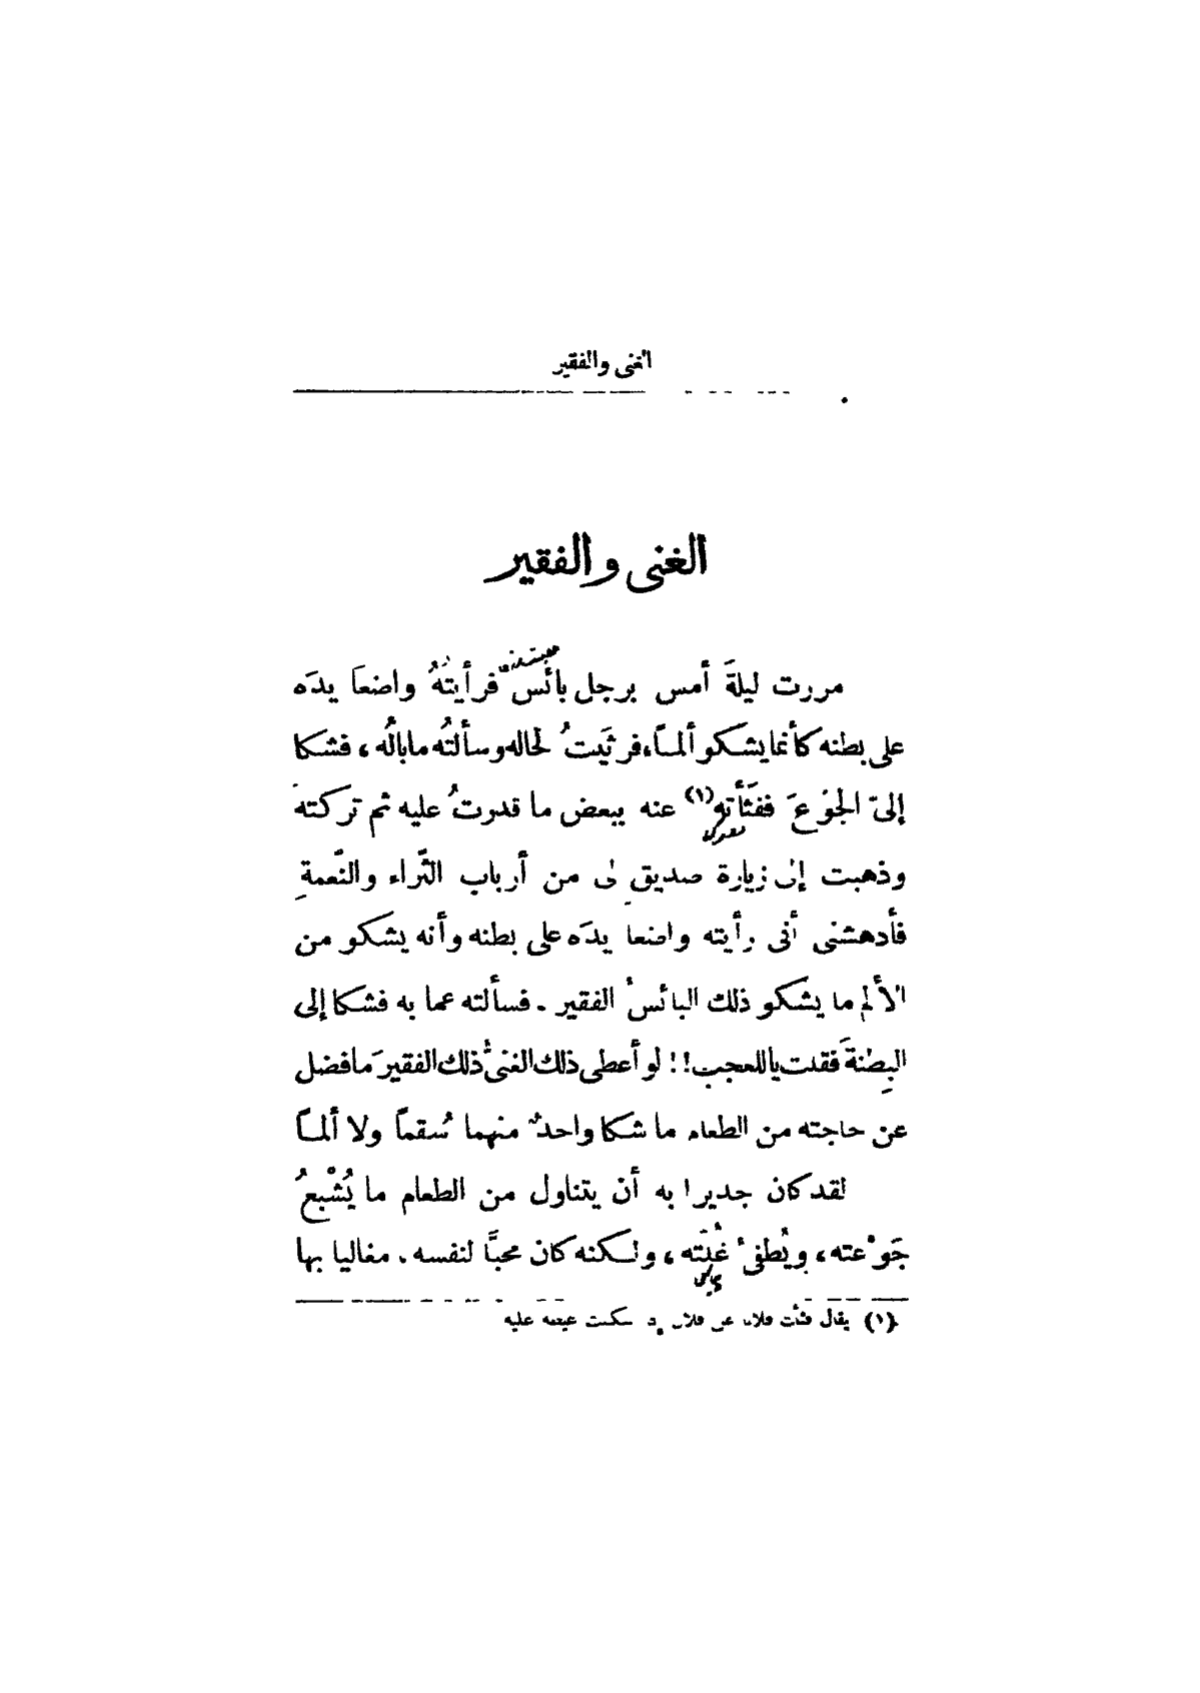 الغنى والفقير
الغنى والفقير
مررت ليلةَ أمس برجل بائس فرأيتهُ واضعاَ يدَه
على بطنه كأنما يشكو ألمــاً، فرثيتُ لحاله وسألتُه ما بالُه ، فشكا
إلىّ الجوْعَ ففثَأته (١) عنه ببعض ما قدرتُ عليه ثم تركتهَ
وذهبت إلى زيارة صديق لى من أرباب الثّراء والنّعمةِ
فأدهشنى أنى رأيته واضعا يدَه على بطنه وأنه يشكو من
الألم ما يشكو ذلك البائسُ الفقير . فسألته عما به فشكا إلى
البِطنةَ فقلت يا للعجب !! لو أعطى ذلك الغنىُّ ذلك الفقيرَ ما فضل
عن حاجته من الطعام ما شكا واحدٌ منهما سُقماً ولا ألمــاً
لقد كان جديرا به أن يتناول من الطعام ما يُشْبعُ
جَوْعته ، ويُطفئُ غُلته ، ولــكنه كان محبًّا لنفسه . مغاليا بها
(١) يقال فثأت فلانا عن فلان سكنت غيظه عليه